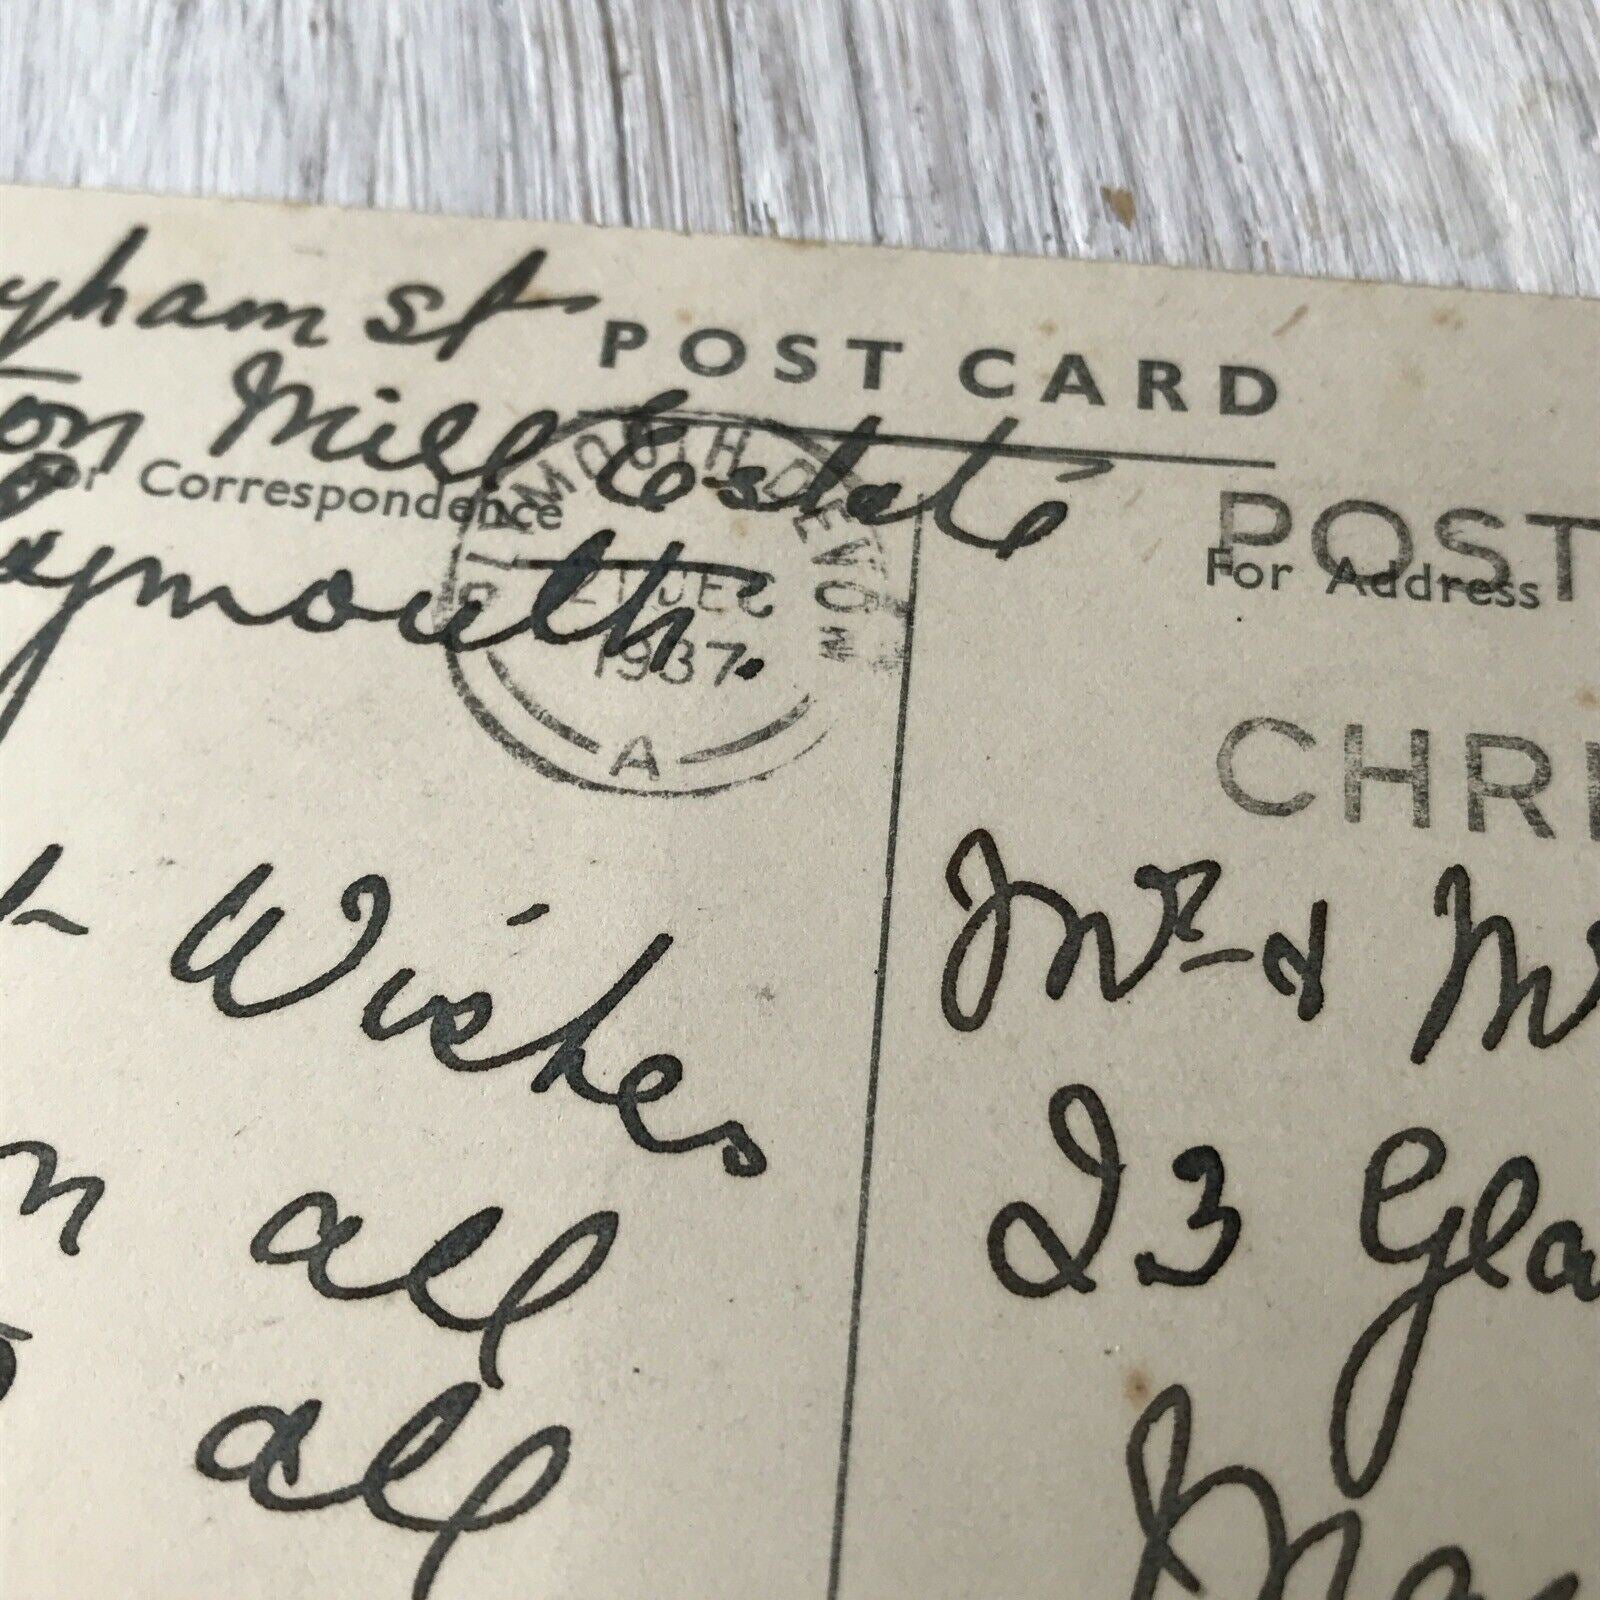 yham st
POST CARD
on Mill Estate
For Correspondence
aymouth.
PLYMOUTH DEVON
21 DEC
1937
A
POST
For Address
CHRI
t Wishes
Mr & M
n all
23 Gla
all